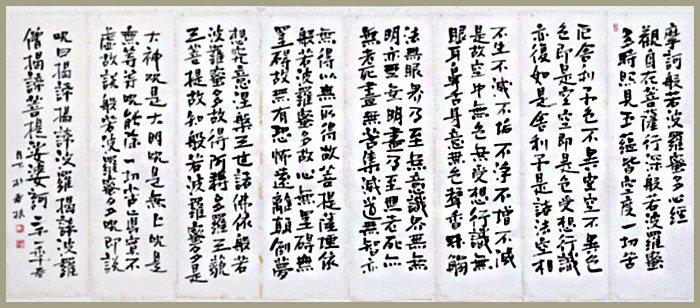 摩訶般若波羅蜜多心經
觀自在菩薩行深般若波羅蜜
多時照見五蘊皆空度一切苦
厄舍利子色不異空空不異色
色即是空空即是色受想行識
亦復如是舍利子是諸法空相
不生不滅不垢不淨不增不減
是故空中無色無受想行識無
眼耳鼻舌身意無色聲香味觸
法無眼界乃至無意識界無無
明亦無無明盡乃至無老死亦
無老死盡無苦集滅道無智亦
無得以無所得故菩提薩埵依
般若波羅蜜多故心無罣礙無
罣礙故無有恐怖遠離顛倒夢
想究竟涅槃三世諸佛依般若
波羅蜜多故得阿耨多羅三藐
三菩提故知般若波羅蜜多是
大神咒是大明咒是無上咒是
無等等咒能除一切苦真實不
虛故說般若波羅蜜多咒即說
咒曰揭諦揭諦波羅揭諦波羅
僧揭諦菩提娑婆訶